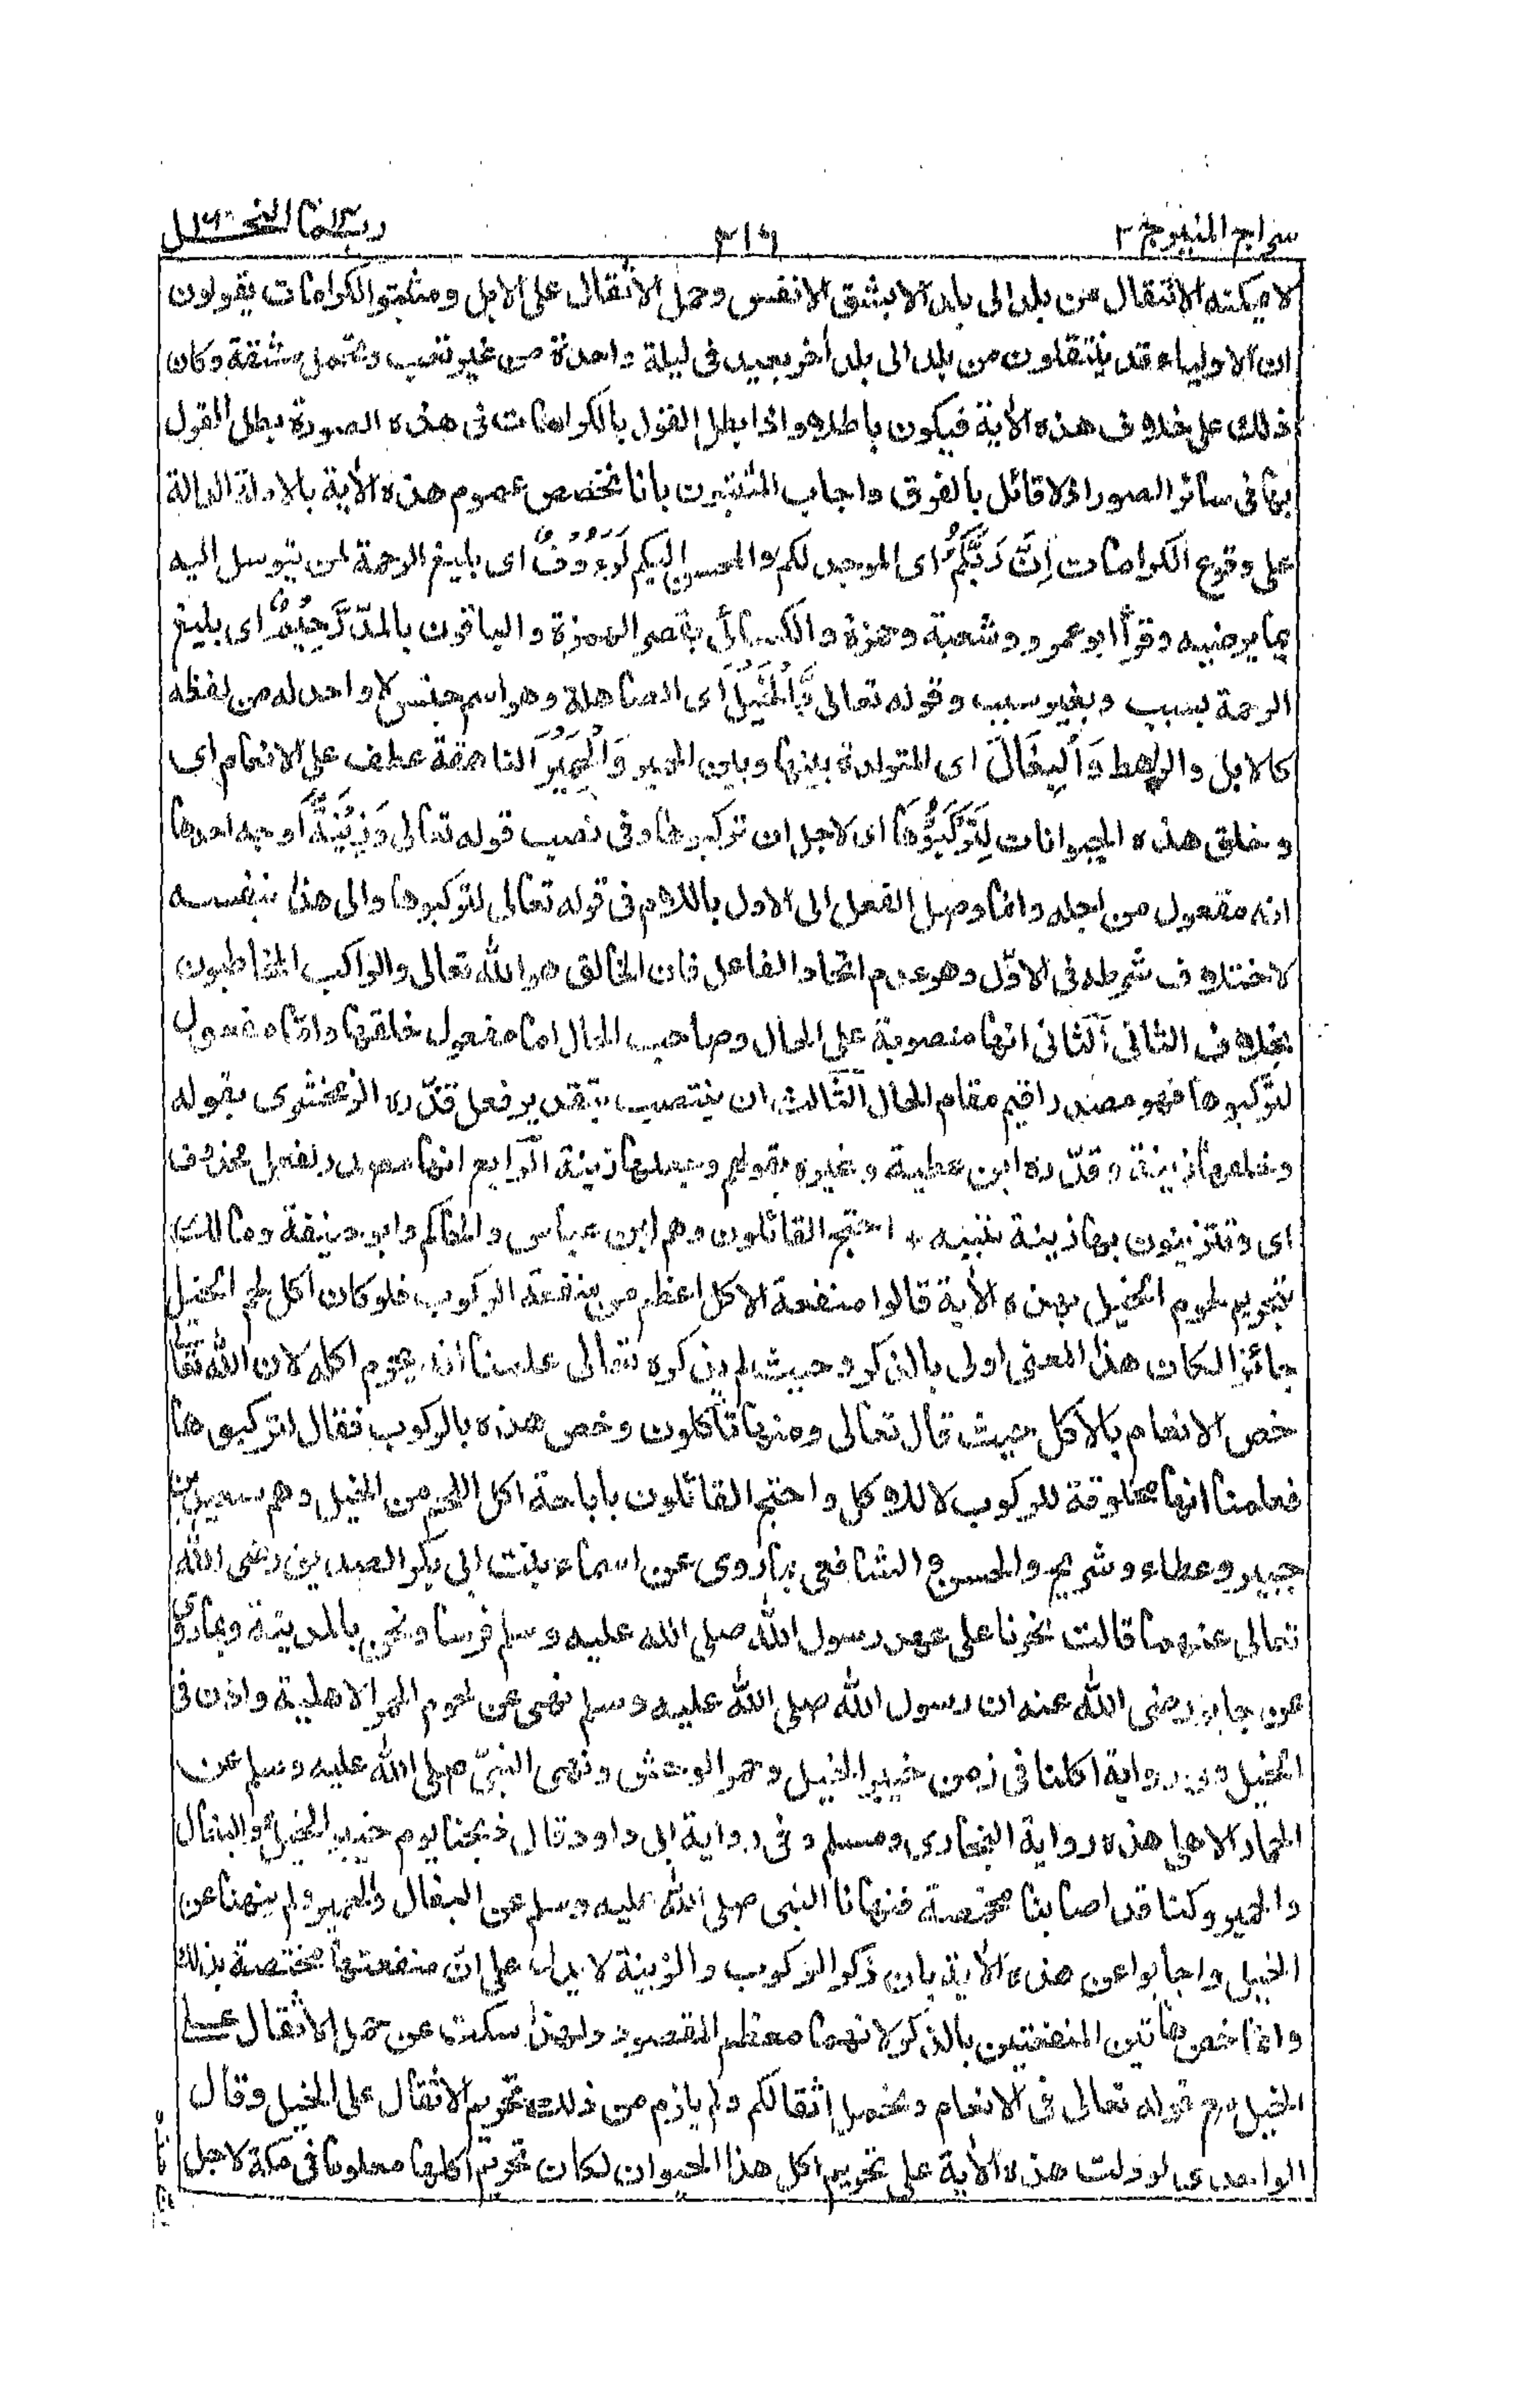 سراج المنير ج ٢ ٢١٦ ربما النحل ١٦
لا يمكنه الانتقال من بلد الى بلد الا بشق الانفس وحمل الاثقال على الابل ومثبتو الكرامات يقولون
ان الاولياء قد ينتقلون من بلد الى بلد أخر بعيد فى ليلة واحدة من غير تعب وتحمل مشقة وكان
ذلك على خلاف هذه الأية فيكون باطلا واذا بطل القول بالكرامات فى هذه الصورة بطل القول
بها فى سائر الصور اذ لا قائل بالفرق واجاب المثبتون بانا نخصص عموم هذه الأية بالادلة الدالة
على وقوع الكرامات اِنَّ رَبَّكُمْ اى الموجد لكم والمحسن اليكم لَرَءُوْفٌ اى بليغ الرحمة لمن يتوسل اليه
بما يرضيه وقرأ ابو عمرو وشعبة وحمزة والكسائى بقصر الهمزة والباقون بالمدّ رَّحِيْمٌ اى بليغ
الرحمة بسبب وبغير سبب وقوله تعالى وَّالْخَيْلَ اى الصاهلة وهو اسم جنس لا واحد له من لفظه
كالابل والرهط وَالْبِغَالَ اى المتولدة بينها وبين الحمير وَالْحَمِيْرَ الناهقة عطف على الانعام اى
وخلق هذه الحيوانات لِتَرْكَبُوْهَا اى لاجل ان تركبوها وفى نصب قوله تعالى وَزِيْنَةً اوجه احدها
انه مفعول من اجله وانما وصل الفعل الى الاول باللام فى قوله تعالى لتركبوها والى هذا بنفسه
لاختلاف شرطه فى الاوّل وهو عدم اتحاد الفاعل فان الخالق هو الله تعالى والراكب المخاطبون
بخلاف الثانى اَلثانى انها منصوبة على الحال وصاحب الحال اما مفعول خلقها وامّا مفعول
لتركبوها فهو مصدر اقيم مقام الحال اَلثالث ان ينتصب بتقدير فعل قدّره الزمخشرى بقوله
وخلقها زينة وقدّره ابن عطية وغيره بقولهم وجعلها زينة اَلرابع انها مصدر لفعل محذوف
اى وتتزينون بها زينة تنبيه * احتج القائلون وهم ابن عباس والحاكم وابو حنيفة ومالك
بتحريم لحوم الخيل بهذه الأية قالوا منفعة الاكل اعظم من منفعة الركوب فلو كان اكل لحم الخيل
جائزا لكان هذا المعنى اولى بالذكر وحيث لم يذكره تعالى علمنا انه يحرم اكله لان الله تعالى
خص الانعام بالاكل حيث قال تعالى ومنها تأكلون وخص هذه بالركوب فقال لتركبوها
فعلمنا انها مخلوقة للركوب لا للاكل واحتج القائلون باباحة اكل اللحم من الخيل وهم سعيد بن
جبير وعطاء وشريح والحسن والشافعى بما روى عن اسماء بنت ابى بكر الصديق رضى الله
تعالى عنهما قالت نحرنا على عهد رسول الله صلى الله عليه وسلم فرسا ونحن بالمدينة وبما روى
عن جابر رضى الله عنه ان رسول الله صلى الله عليه وسلم نهى عن لحوم الحمر الاهلية واذن فى
الخيل وفى رواية اكلنا فى زمن خيبر الخيل وحمر الوحش ونهى النبىّ صلى الله عليه وسلم عن
الحمار الاهلى هذه رواية البخارى ومسلم وفى رواية ابى داود قال ذبحنا يوم خيبر الخيل والبغال
والحمير وكنا قد اصابنا مخمصة فنهانا النبى صلى الله عليه وسلم عن البغال والحمير ولم ينهنا عن
الخيل واجابوا عن هذه الأية بان ذكر الركوب والزينة لا يدل على انّ منفعتها مختصة بذلك
وانما خص هاتين المنفعتين بالذكر لانهما معظم المقصود ولهذا سكت عن حمل الاثقال على
الخيل مع قوله تعالى فى الانعام وتحمل اثقالكم ولم يلزم من ذلك تحريم الاثقال على الخيل وقال
الواحدى لو دلت هذه الأية على تحريم اكل هذا الحيوان لكان تحريم اكلها معلوما فى مكة لاجل